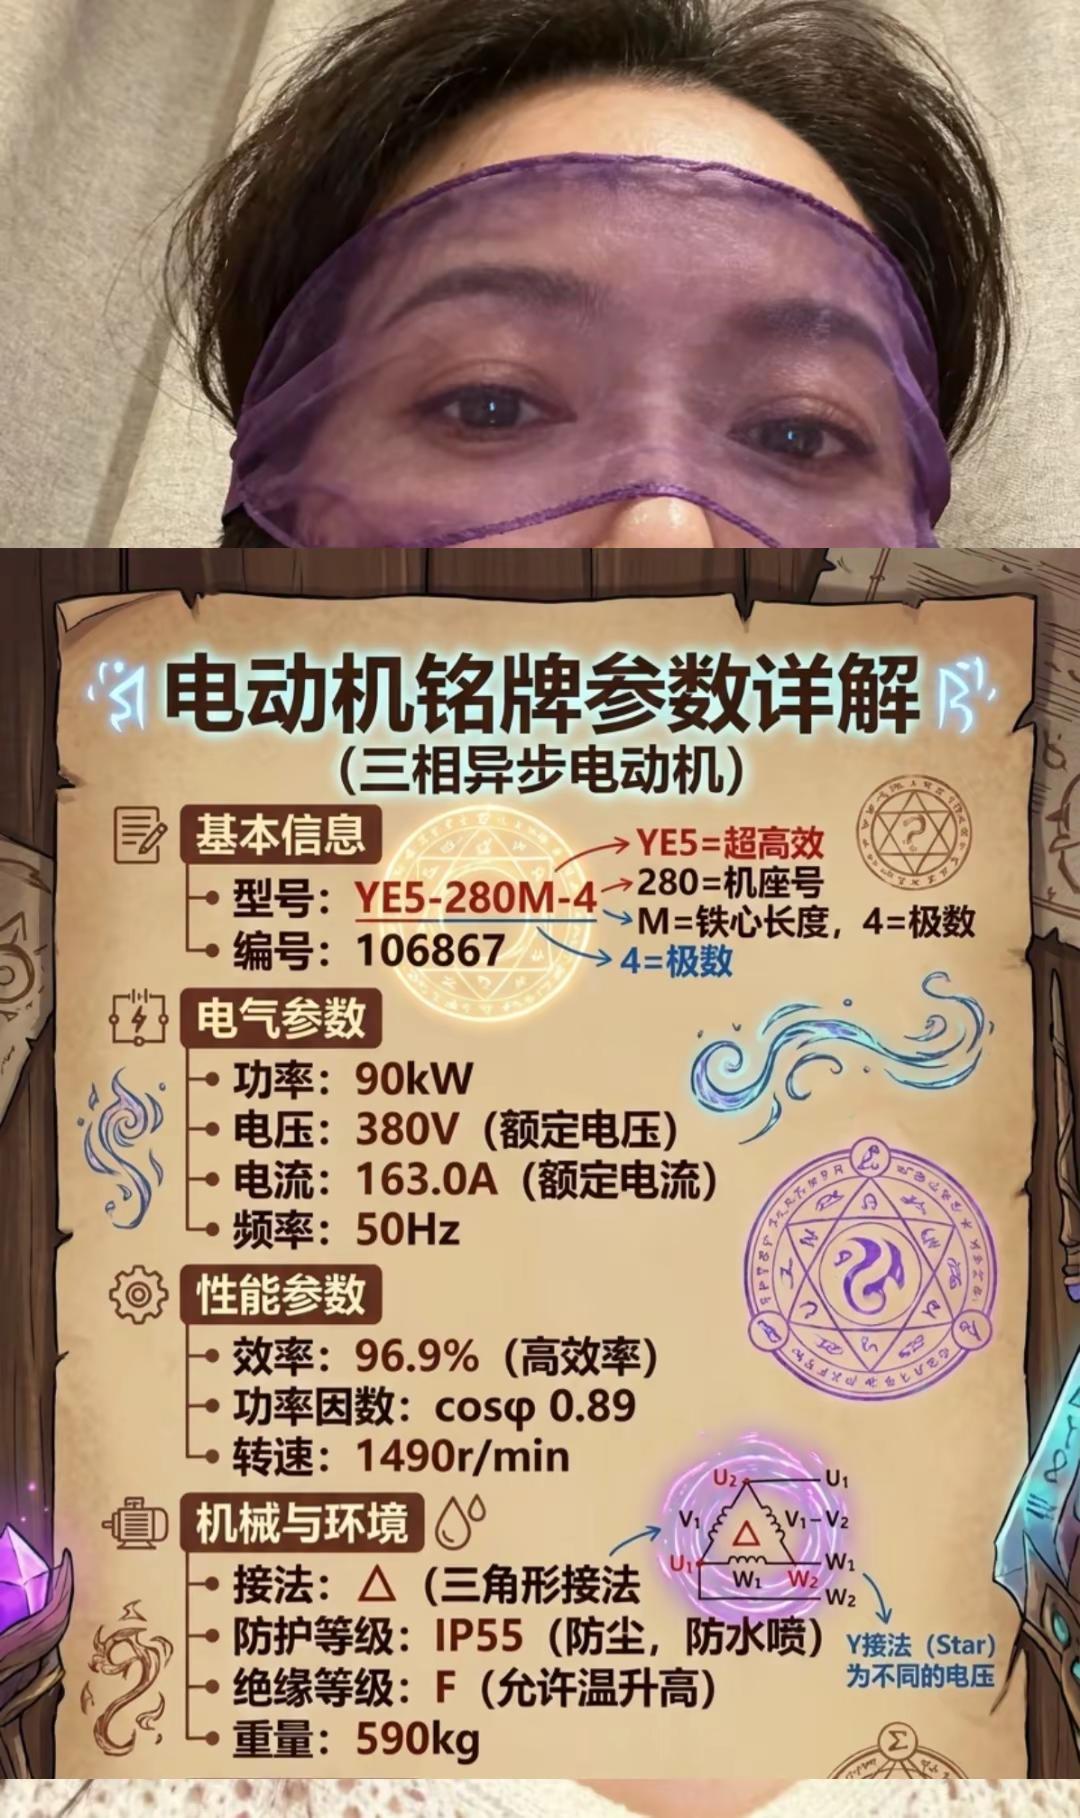 电动机铭牌参数详解
（三相异步电动机）
基本信息
型号：YE5-280M-4
YE5=超高效
280=机座号
M=铁心长度，4=极数
4=极数
编号：106867
电气参数
功率：90kW
电压：380V（额定电压）
电流：163.0A（额定电流）
频率：50Hz
性能参数
效率：96.9%（高效率）
功率因数：cosφ 0.89
转速：1490r/min
机械与环境
接法：△（三角形接法
U₂ U₁
V₁ △ V₁-V₂
U₁ W₁ W₂ W₁
W₂
防护等级：IP55（防尘，防水喷）
Y接法（Star）
为不同的电压
绝缘等级：F（允许温升高）
重量：590kg
Σ